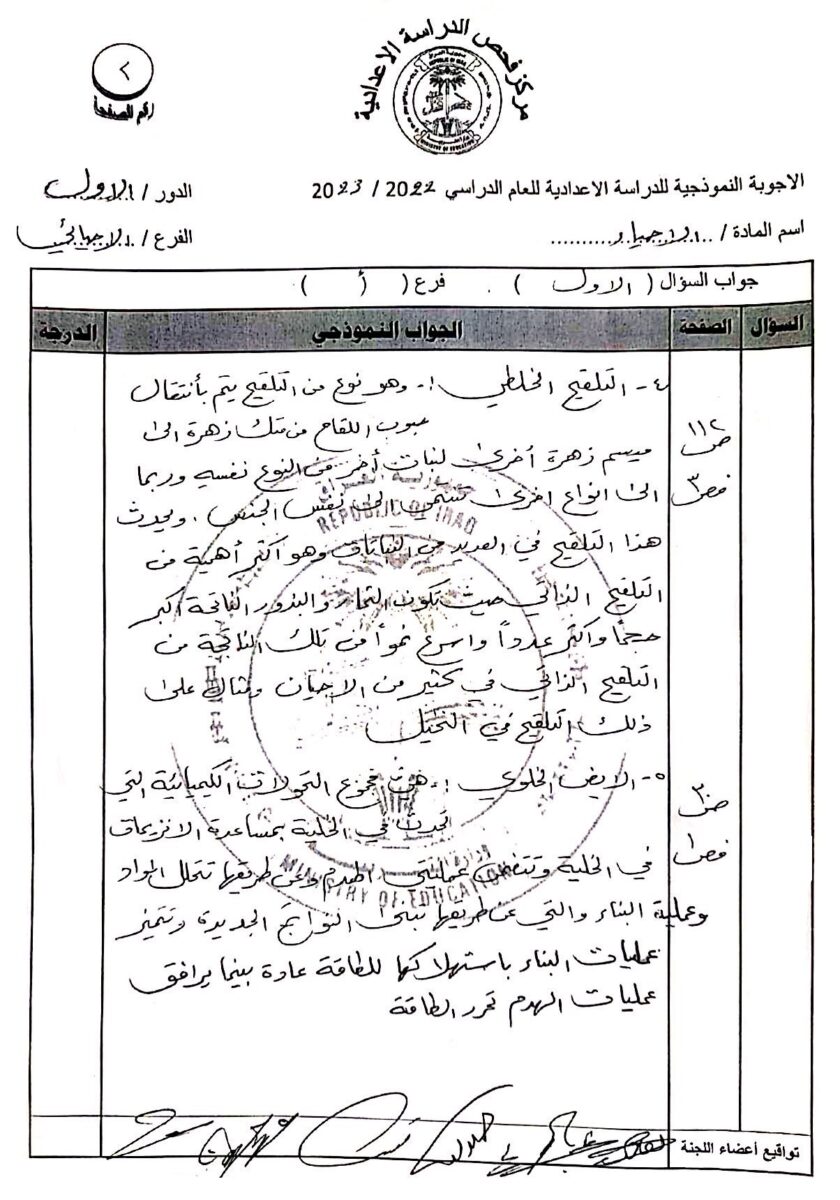 مركز فحص الدراسة الاعدادية
REPUBLIC OF IRAQ
MINISTRY OF EDUCATION
٢
رقم الصفحة
الاجوبة النموذجية للدراسة الاعدادية للعام الدراسي 2022 / 2023
الدور / الاول
اسم المادة / الاحياء
الفرع / الاحيائي
جواب السؤال ( الاول ) . فرع ( أ )
السؤال الصفحة الجواب النموذجي الدرجة
٤- التلقيح الخلطي :- وهو نوع من التلقيح يتم بأنتقال
حبوب اللقاح من متك زهرة الى
ص ١١٢
ميسم زهرة أخرى لنبات أخر من النوع نفسه وربما
ف٣
الى انواع اخرى تنتمي الى نفس الجنس . ويحدث
هذا التلقيح في العديد من النباتات وهو اكثر أهمية من
التلقيح الذاتي حيث تكون الثمار والبذور الناتجة اكبر
حجماً واكثر عدداً واسرع نمواً من تلك الناتجة من
التلقيح الذاتي في كثير من الاحيان ومثال على
ذلك التلقيح في النخيل
٥- الايض الخلوي :- هي مجموع التحولات الكيميائية التي
ص٣٠
تحدث في الخلية بمساعدة الانزيمات
ف١
في الخلية وتتضمن عمليتي الهدم وعن طريقها تتحلل المواد
وعملية البناء والتي عن طريقها تبنى النواتج الجديدة وتتميز
عمليات البناء باستهلاكها للطاقة عادة بينما يرافق
عمليات الهدم تحرر الطاقة
تواقيع أعضاء اللجنة
REPUBLIC OF IRAQ
MINISTRY OF EDUCATION